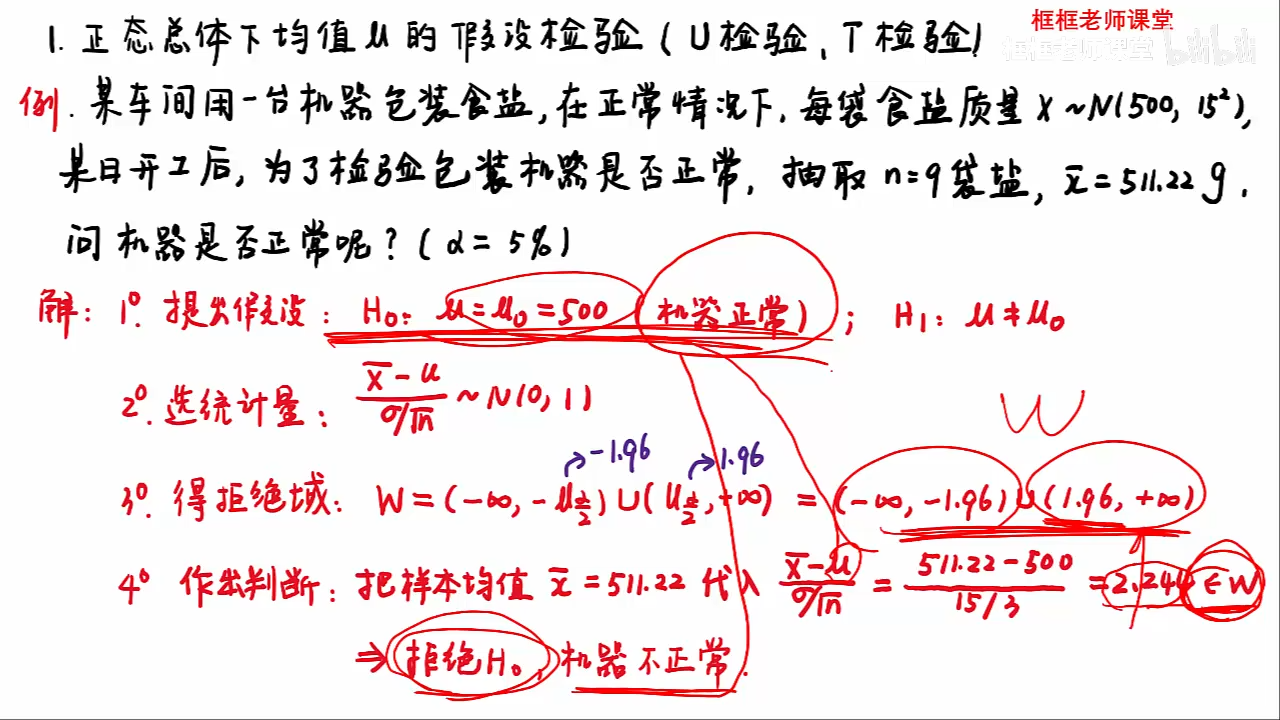 框框老师课堂
1. 正态总体下均值μ的假设检验(U检验、T检验)
框框老师课堂 bilibili
例. 某车间用一台机器包装食盐,在正常情况下,每袋食盐质量 X~N(500, 15²),
某日开工后,为了检验包装机器是否正常,抽取n=9袋盐, x̄=511.22g.
问机器是否正常呢?(α=5%)
解: 1° 提出假设: H₀: μ=μ₀=500 (机器正常); H₁: μ≠μ₀
2°. 选统计量: (x̄-μ)/(σ/√n) ~N(0,1)
W
-1.96 1.96
3°. 得拒绝域: W=(-∞, -μ_{α/2})∪(μ_{α/2}, +∞) = (-∞, -1.96)∪(1.96, +∞)
4° 作出判断: 把样本均值 x̄=511.22 代入 (x̄-μ)/(σ/√n) = (511.22-500)/(15/3) =2.244∈W
⇒ 拒绝H₀, 机器不正常.